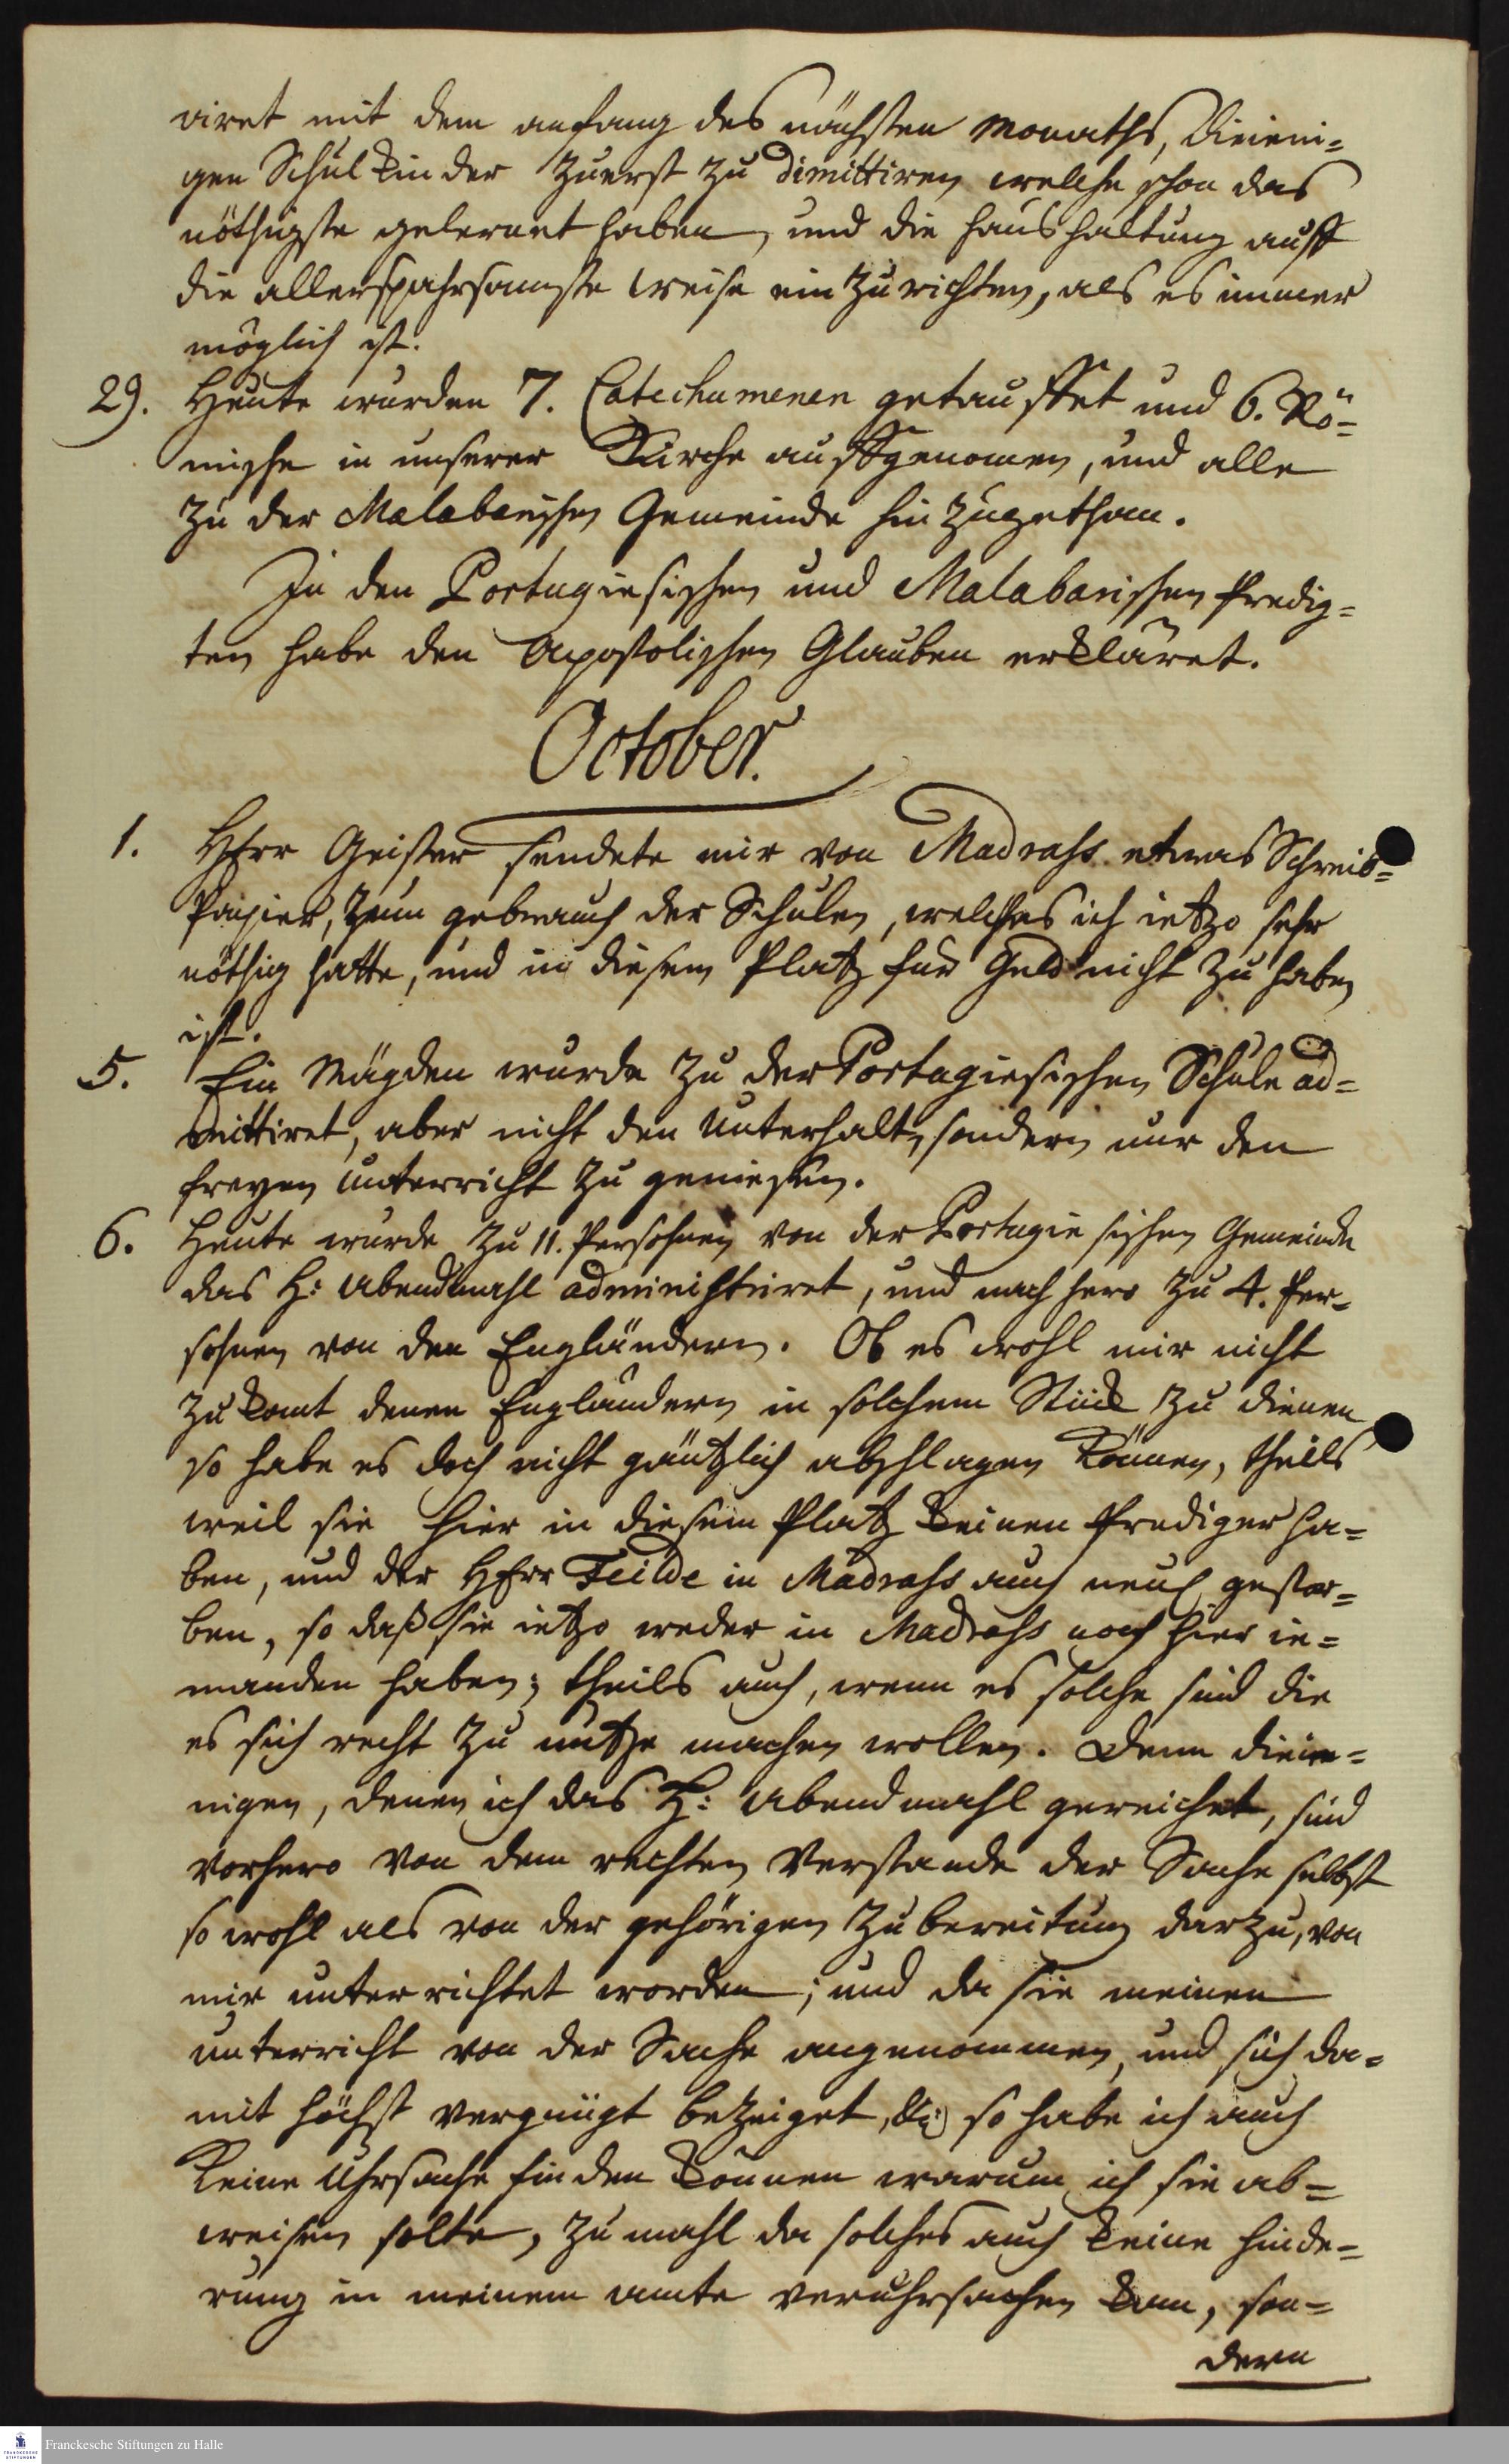 viret mit dem anfang des nächsten Monaths, dieieni=
gen Schul Kinder zuerst zu dimittiren welche schon das
nöthigste gelernet haben, und die haushaltung auff
die allersparsamste weise ein zu richten, als es immer
möglich ist.
29. Heute wurden 7. Catechumenen getauffet und 6. Rö=
mische in unserer Kirche auffgenomen, und alle
zu der Malabarischen Gemeinde hin zugethan.
In den Portugiesischen und Malabarischen Predig=
ten habe den Apostolischen Glauben erkläret.
October.
1. HErr Geister sendete mir von Madrass etwas Schreib=
Papier, zum gebrauch der Schulen, welches ich ietzo sehr
nöthig hatte, und in diesem Platz für Geld nicht zu haben
ist.
5. Ein Mägden wurde zu der Portugiesischen Schule ad=
mittiret, aber nicht den Unterhalt, sondern nur den
freyen Unterricht zu geniesen.
6. Heute wurde zu 11. Persohnen von der Portugiesischen Gemeinde
das H: Abendmahl administriret, und nach hero zu 4. Per=
sohnen von den Engländern. Ob es wohl mir nicht
zu komt denen Engländern in solchem Stück zu dienen
so habe es doch nicht gäntzlich abschlagen können, theils
weil sie hier in diesem Platz keinen Prediger ha=
ben, und der HErr Feilde in Madrass auch neul. gestor=
ben, so daß sie ietzo weder in Madrass noch hier ie=
manden haben; theils auch, wenn es solche sind die
es sich recht zu nutze machen wollen. Denn dieie=
nigen, denen ich das H: Abendmahl gereichet, sind
vorhero von dem rechten Verstande der Sache selbst
so wohl als von der gehörigen Zubereitung darzu, von
mir unterrichtet worden; und da sie meinen
unterricht von der Sache angenommen, und sich da=
mit höchst vergnügt bezeiget, so habe ich auch
keine Uhrsache finden können warum ich sie ab=
weisen solte, zu mahl da solches auch keine hinde=
rung in meinem amte veruhrsachen kan, son=
dern
Franckesche Stiftungen zu Halle